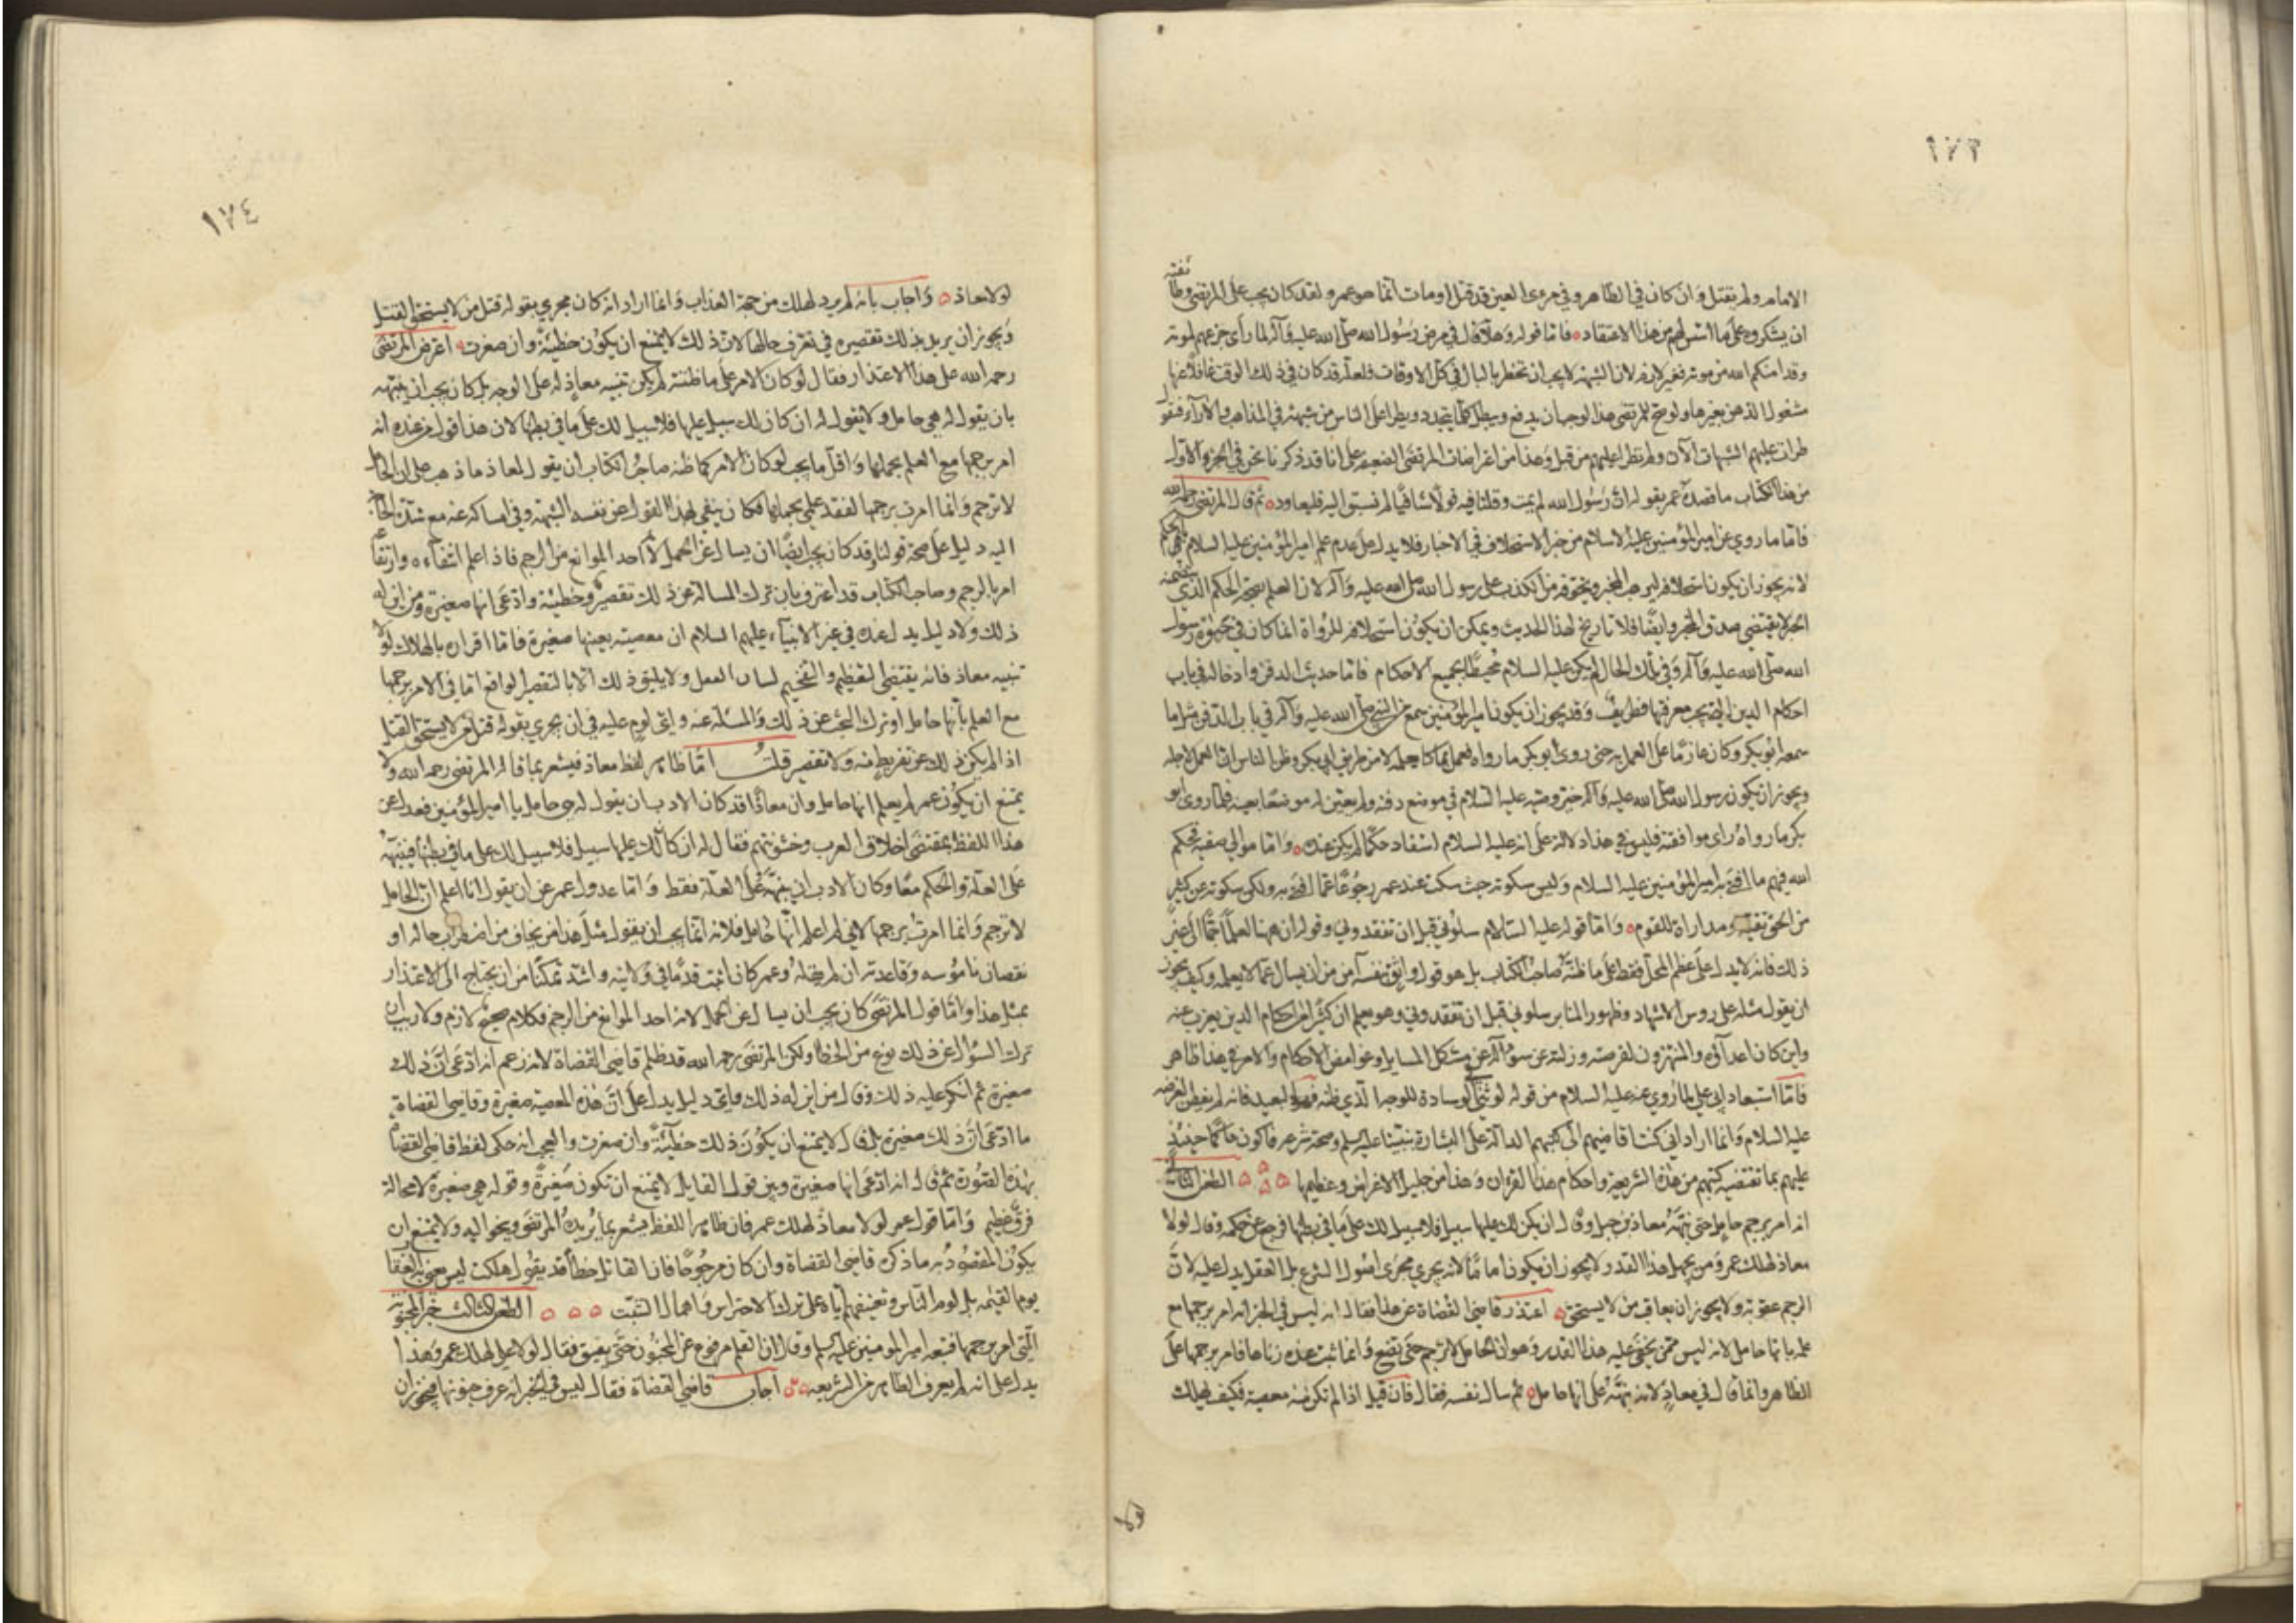 ١٧٣
الامام ولم يقتل وان كان في الظاهر وفي مرءى العين قد قتل او مات انما هو عمر ولقد كان يجب على المرتضى وطائفته
ان يشكروه على ما اسس لهم من هذا الاعتقاد فاما قوله وهلا قال في مرض رسول الله صلى الله عليه وآله لما رأى جزعهم لموته
وقد امنكم الله من موته فغير لازم لان الشبهة لا يجب ان تخطر بالبال في كل الاوقات فلعله قد كان في ذلك الوقت غافلا عنها
مشغول الذهن بغيرها ولو صح للمرتضى هذا لوجب ان يدفع ويبطل كل ما يتجدد ويطرا على الناس من شبهة في المذاهب والآراء فنقول
طرات عليهم الشبهات الآن ولم تطرا عليهم من قبل وهذا من اعتراضات المرتضى الضعيفة على انا قد ذكرنا نحن في الجزء الاول
من هذا الكتاب ما قصده عمر بقوله ان رسول الله لم يمت وقلنا فيه قولا شافيا لم نسبق اليه فليعاود ثم قال المرتضى رحمه الله
فاما ما روي عن امير المؤمنين عليه السلام من خبر الاستحلاف في الاخبار فلا يدل على عدم علم امير المؤمنين عليه السلام بالحكم
لانه يجوز ان يكون استحلافه ليرهب المخبر ويخوفه من الكذب على رسول الله صلى الله عليه وآله لان العلم بصحة الحكم الذي يتضمنه
الخبر لا يقتضي صدق المخبر وايضا فلا تاريخ لهذا الحديث ويمكن ان يكون استحلافه للرواة انما كان في حيوة رسول
الله صلى الله عليه وآله وفي تلك الحال لم يكن عليه السلام محيطا بجميع الاحكام فاما حديث الدفن وادخاله في باب
احكام الدين التي يجب معرفتها فطريف وقد يجوز ان يكون امير المؤمنين سمع من النبي صلى الله عليه وآله في باب الدفن مثل ما
سمعه ابو بكر وكان عازما على العمل به حتى روى ابو بكر ما رواه فعمل بما كان يعلمه لا من طريق ابي بكر وظن الناس ان العمل لاجله
ويجوز ان يكون رسول الله صلى الله عليه وآله خير وصيه عليه السلام في موضع دفنه ولم يعين له موضعا بعينه فلما روى ابو
بكر ما رواه راى موافقته فليس في هذا دلالة على انه عليه السلام استفاد حكما لم يكن عنده واما موالي صفية فحكم
الله فيهم ما افتى به امير المؤمنين عليه السلام وليس سكوته حيث سكت عند عمر رجوعا عما افتى به ولكن سكوته عن كثير
من الحق تقية ومداراة للقوم واما قوله عليه السلام سلوني قبل ان تفقدوني وقوله ان ههنا لعلما جما الى غير
ذلك فانه لا يدل على عظم المحل فقط على ما ظنه صاحب الكتاب بل هو قول واثق بنفسه آمن من ان يسال عما لا يعلمه وكيف يجوز
ان يقول مثله على روس الاشهاد وظهور المنابر سلوني قبل ان تفقدوني وهو يعلم ان كثيرا من احكام الدين يعزب عنه
واين كان اعداؤه والمنتهزون لفرصته وزلته عن سؤاله عن مشكل المسايل وغوامض الاحكام والامر في هذا ظاهر
فاما استبعاد ابي علي لما روي عنه عليه السلام من قوله لو ثنيت لي الوسادة للوجه الذي ظنه فهو البعيد فانه لم يفطن لغرضه
عليه السلام وانما اراد اني كنت اقاضيهم الى كتبهم الدالة على البشارة بنبينا عليه السلم وصحة شرعه فاكون حاكما حينئذ
عليهم بما تقتضيه كتبهم من هذه الشريعة واحكام هذا القرءان وهذا من جليل الاغراض وعظيمها الطعن الثاني
انه امر برجم حامل حتى نبهه معاذ بن جبل وقال ان يكن لك عليها سبيل فلا سبيل لك على ما في بطنها فرجع عن حكمه وقال لولا
معاذ لهلك عمر ومن يجهل هذا القدر لا يجوز ان يكون اماما لانه يجري مجرى اصول الشرع بل العقل يدل عليه لان
الرجم عقوبة ولا يجوز ان يعاقب من لا يستحق اعتذر قاضي القضاة عن هذا فقال انه ليس في الخبر انه امر برجمها مع
علمه بانها حامل لانه ليس ممن يخفى عليه هذا القدر وهو ان الحامل لا ترجم حتى تضع وانما ثبت عنده زناها فامر برجمها على
الظاهر وانما قال في معاذ لانه نبهه على انها حامل ثم سال نفسه فقال فان قيل اذا لم تكن منه معصية فكيف يهلك
١٧٤
لولا معاذ واجاب بانه لم يرد لهلك من جهة العذاب وانما اراد انه كان يجري بقوله قتل من لا يستحق القتل
ويجوز ان يريد بذلك تقصيره في تعرف حالها لان ذلك لا يمتنع ان يكون خطيئة وان صغرت اعترض المرتضى
رحمه الله على هذا الاعتذار فقال لو كان الامر على ما ظننته لم يكن تنبيه معاذ له على الوجه بل كان يجب ان ينبهه
بان يقول له هي حامل ولا يقول له ان كان لك سبيل عليها فلا سبيل لك على ما في بطنها لان هذا قول من عنده انه
امر برجمها مع العلم بحملها واقل ما يجب لو كان الامر كما ظنه صاحب الكتاب ان يقول لمعاذ ما ذهب علي ان الحامل
لا ترجم وانما امرت برجمها لفقد علمي بحملها فكان ينفي بهذا القول عن نفسه الشبهة وفي امساكه عنه مع شدة الحاجة
اليه دليل على صحة قولنا وقد كان يجب ايضا ان يسال عن الحمل لانه احد الموانع من الرجم فاذا علم انتفاءه وارتفاعه
امر بالرجم وصاحب الكتاب قد اعترف بان ترك المسالة عن ذلك تقصير وخطيئة وادعى انها صغيرة ومن اين له
ذلك ولا دليل يدل عنده في غير الانبياء عليهم السلام ان معصيته بعينها صغيرة فاما اقراره بالهلاك لولا
تنبيه معاذ فانه يقتضي التعظيم والتفخيم لشان الفعل ولا يليق ذلك الا بالتقصير الواقع اما في الامر برجمها
مع العلم بانها حامل او ترك البحث عن ذلك والمسئلة عنه واي لوم عليه في ان يجري بقوله قتل من لا يستحق القتل
اذا لم يكن ذلك عن تفريط منه ولا تقصير قلت اما ظاهر لفظ معاذ فيشعر بما قاله المرتضى رحمه الله ولا
يمتنع ان يكون عمر لم يعلم انها حامل وان معاذا قد كان الادب ان يقول له هي حامل يا امير المؤمنين فعدل عن
هذا اللفظ بمقتضى اخلاق العرب وخشونتهم فقال له ان كان لك عليها سبيل فلا سبيل لك على ما في بطنها فنبهه
على العلة والحكم معا وكان الادب ان ينبهه على العلة فقط واما عدول عمر عن ان يقول انا اعلم ان الحامل
لا ترجم وانما امرت برجمها لاني لم اعلم انها حامل فلانه انما يجب ان يقول مثل هذا من يخاف من اضطراب حاله او
نقصان ناموسه وقاعدته ان لم يقله وعمر كان اثبت قدما في ولايته واشد تمكنا من ان يحتاج الى الاعتذار
بمثل هذا واما قول المرتضى كان يجب ان يسال عن الحمل لانه احد الموانع من الرجم فكلام صحيح لازم ولا ريب ان
ترك السؤال عن ذلك نوع من الخطا ولكن المرتضى رحمه الله قد ظلم قاضي القضاة لانه زعم انه ادعى ان ذلك
صغيرة ثم انكر عليه ذلك وقال من اين له ذلك واي دليل يدل على ان هذه المعصية صغيرة وقاضي القضاة
ما ادعى ان ذلك صغيرة بل قال لا يمتنع ان يكون ذلك خطيئة وان صغرت والعجب انه حكى لفظ قاضي القضاة
بهذه الصورة ثم قال انه ادعى انها صغيرة وبين قول القايل لا يمتنع ان تكون صغيرة وقوله هي صغيرة لا محالة
فرق عظيم واما قول عمر لولا معاذ لهلك عمر فان ظاهر اللفظ يشعر بما يريده المرتضى وينحو اليه ولا يمتنع ان
يكون المقصود به ما ذكره قاضي القضاة وان كان مرجوحا فان القائل خطأ قد يقول هلكت ليس يعني به العقاب
يوم القيمة بل لوم الناس وتعنيفهم اياه على ترك الاحتراس واهمال التثبت الطعن الثالث خبر المجنونة
التي امر برجمها فنبهه امير المومنين عليه السلم وقال ان القلم مرفوع عن المجنون حتى يفيق فقال لولا علي لهلك عمر وهذا
يدل على انه لم يعرف الظاهر من الشريعه اجاب قاضي القضاة فقال ليس في الخبر انه عرف جنونها فيجوز ان